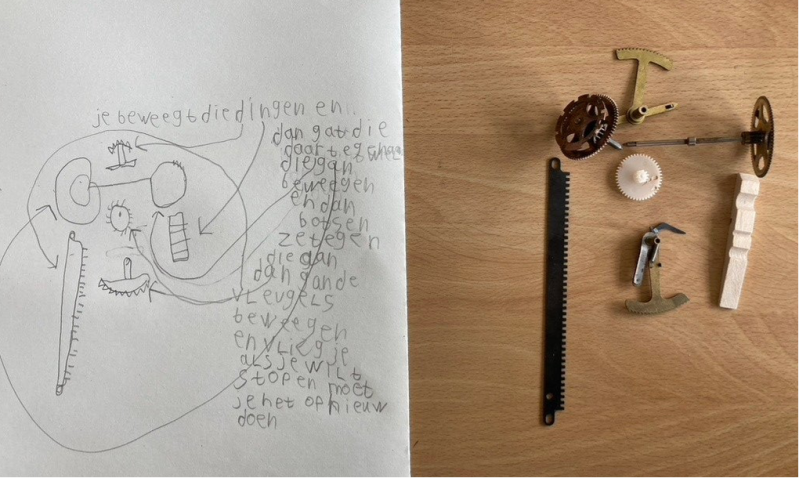 je beweegt die dingen en..
dan gat die
daar tegenaan
die gan
beweegen
en dan
botsen
ze tegen
die gan
dan gan de
vleugels
beweegen
en vlieg je
als je wilt
stopen moet
je het opnieuw
doen